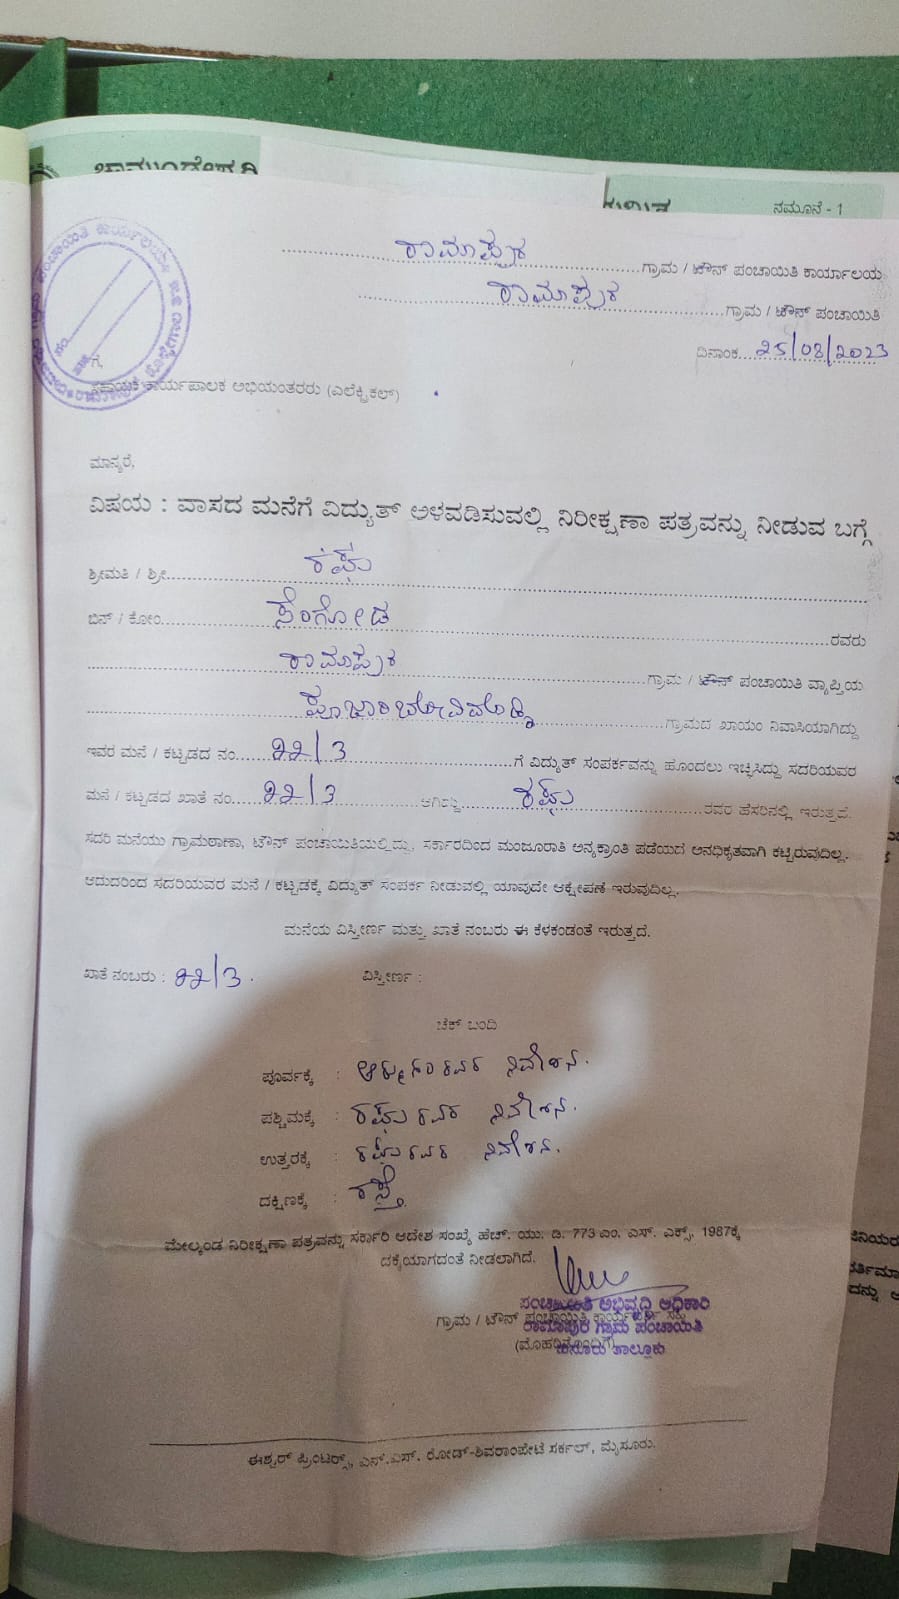 ನಮೂನೆ - 1
ರಾಮಾಪುರ ಗ್ರಾಮ / ಟೌನ್ ಪಂಚಾಯಿತಿ ಕಾರ್ಯಾಲಯ
ರಾಮಾಪುರ ಗ್ರಾಮ / ಟೌನ್ ಪಂಚಾಯಿತಿ
ದಿನಾಂಕ 25/08/2023
ಗೆ,
ಸಹಾಯಕ ಕಾರ್ಯಪಾಲಕ ಅಭಿಯಂತರರು (ಎಲೆಕ್ಟ್ರಿಕಲ್)
ಮಾನ್ಯರೆ,
ವಿಷಯ : ವಾಸದ ಮನೆಗೆ ವಿದ್ಯುತ್ ಅಳವಡಿಸುವಲ್ಲಿ ನಿರೀಕ್ಷಣಾ ಪತ್ರವನ್ನು ನೀಡುವ ಬಗ್ಗೆ
ಶ್ರೀಮತಿ / ಶ್ರೀ ರಘು
ಬಿನ್ / ಕೋಂ ಸೆಂಗೋಡ ರವರು
ರಾಮಾಪುರ ಗ್ರಾಮ / ಟೌನ್ ಪಂಚಾಯಿತಿ ವ್ಯಾಪ್ತಿಯ
ಗ್ರಾಮದ ಖಾಯಂ ನಿವಾಸಿಯಾಗಿದ್ದು
ಇವರ ಮನೆ / ಕಟ್ಟಡದ ನಂ. 22/3 ಗೆ ವಿದ್ಯುತ್ ಸಂಪರ್ಕವನ್ನು ಹೊಂದಲು ಇಚ್ಛಿಸಿದ್ದು ಸದರಿಯವರ
ಮನೆ / ಕಟ್ಟಡದ ಖಾತೆ ನಂ. 22/3 ಆಗಿದ್ದು ರಘು ರವರ ಹೆಸರಿನಲ್ಲಿ ಇರುತ್ತದೆ.
ಸದರಿ ಮನೆಯು ಗ್ರಾಮಠಾಣಾ, ಟೌನ್ ಪಂಚಾಯಿತಿಯಲ್ಲಿದ್ದು, ಸರ್ಕಾರದಿಂದ ಮಂಜೂರಾತಿ ಅನ್ಯಕ್ರಾಂತಿ ಪಡೆಯದ ಅನಧಿಕೃತವಾಗಿ ಕಟ್ಟಿರುವುದಿಲ್ಲ.
ಆದುದರಿಂದ ಸದರಿಯವರ ಮನೆ / ಕಟ್ಟಡಕ್ಕೆ ವಿದ್ಯುತ್ ಸಂಪರ್ಕ ನೀಡುವಲ್ಲಿ ಯಾವುದೇ ಆಕ್ಷೇಪಣೆ ಇರುವುದಿಲ್ಲ.
ಮನೆಯ ವಿಸ್ತೀರ್ಣ ಮತ್ತು ಖಾತೆ ನಂಬರು ಈ ಕೆಳಕಂಡಂತೆ ಇರುತ್ತದೆ.
ಖಾತೆ ನಂಬರು : 22/3. ವಿಸ್ತೀರ್ಣ :
ಚೆಕ್ ಬಂದಿ
ಪೂರ್ವಕ್ಕೆ : ಆರ್ಮುಗಂರವರ ನಿವೇಶನ.
ಪಶ್ಚಿಮಕ್ಕೆ : ರಘು ರವರ ನಿವೇಶನ.
ಉತ್ತರಕ್ಕೆ : ರಘುರವರ ನಿವೇಶನ.
ದಕ್ಷಿಣಕ್ಕೆ : ರಸ್ತೆ
ಮೇಲ್ಕಂಡ ನಿರೀಕ್ಷಣಾ ಪತ್ರವನ್ನು ಸರ್ಕಾರಿ ಆದೇಶ ಸಂಖ್ಯೆ ಹೆಚ್. ಯು. ಡಿ. 773 ಎಂ. ಎಸ್. ಎಕ್ಸ್. 1987ಕ್ಕೆ
ದಕ್ಕೆಯಾಗದಂತೆ ನೀಡಲಾಗಿದೆ.
ಪಂಚಾಯಿತಿ ಅಭಿವೃದ್ಧಿ ಅಧಿಕಾರಿ
ಗ್ರಾಮ / ಟೌನ್ ಪಂಚಾಯಿತಿ
ರಾಮಾಪುರ ಗ್ರಾಮ ಪಂಚಾಯಿತಿ
ಹನೂರು ತಾಲ್ಲೂಕು
ಈಶ್ವರ್ ಪ್ರಿಂಟರ್ಸ್, ಎನ್.ಎಸ್. ರೋಡ್-ಶಿವರಾಂಪೇಟೆ ಸರ್ಕಲ್, ಮೈಸೂರು.